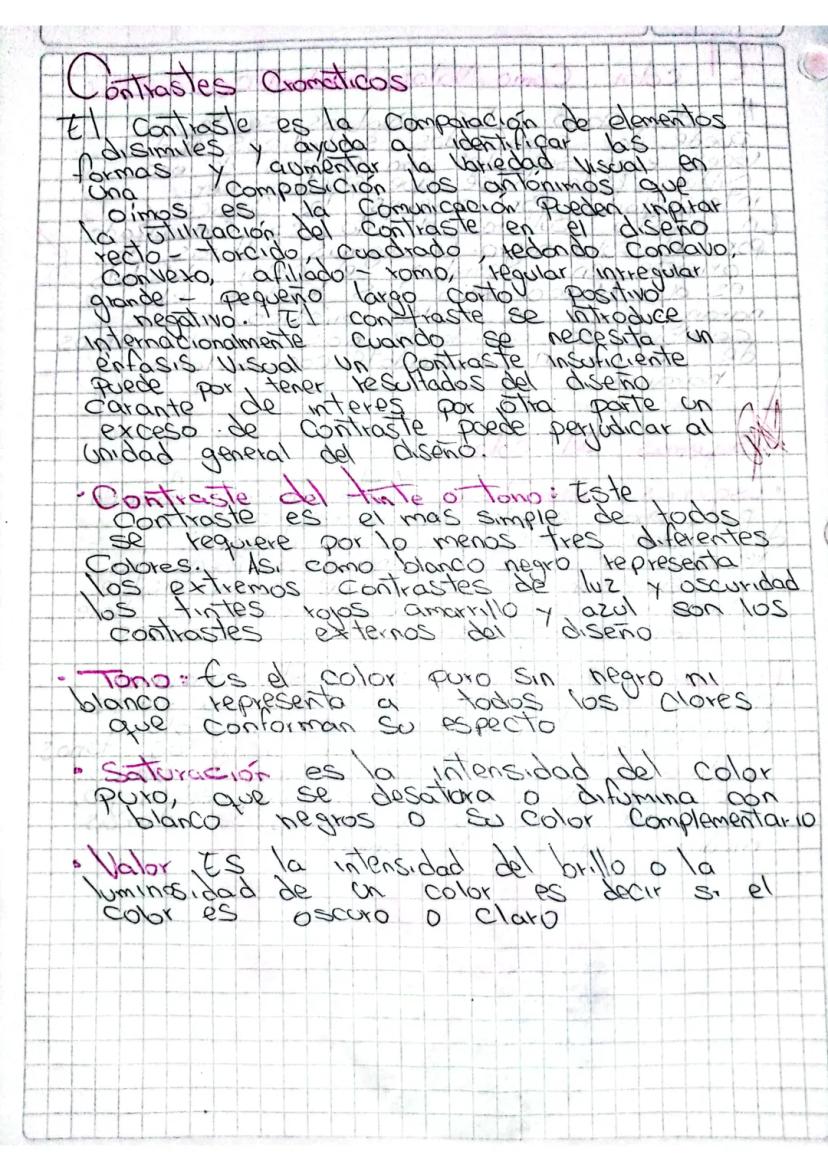 Contrastes Cromáticos
El contraste es la comparación de elementos
disimiles y ayuda a identificar las
formas y aumentar la variedad visual en
una composición los antónimos que
oimos es la comunicación pueden inpirar
la utilización del contraste en el diseño
recto - torcido, cuadrado, redondo concavo,
convexo, afiliado - romo, regular inrregular
grande - pequeño largo corto positivo
negativo. El contraste se introduce
internacionalmente cuando se necesita un
énfasis visual un contraste insuficiente
puede por tener resultados del diseño
carante de interes por otra parte un
exceso de contraste puede perjudicar al
unidad general del diseño.
• Contraste del tinte o tono: Este
contraste es el mas simple de todos
se requiere por lo menos tres diferentes
colores. Asi como blanco negro representa
los extremos contrastes de luz y oscuridad
los tintes rojos amarrillo y azul son los
contrastes externos del diseño
• Tono: Es el color puro sin negro ni
blanco representa a todos los clores
que conforman su especto
• Saturación es la intensidad del color
puro, que se desatura o difumina con
blanco negros o su color complementario
• Valor Es la intensidad del brillo o la
luminosidad de un color es decir si el
color es oscuro o claro